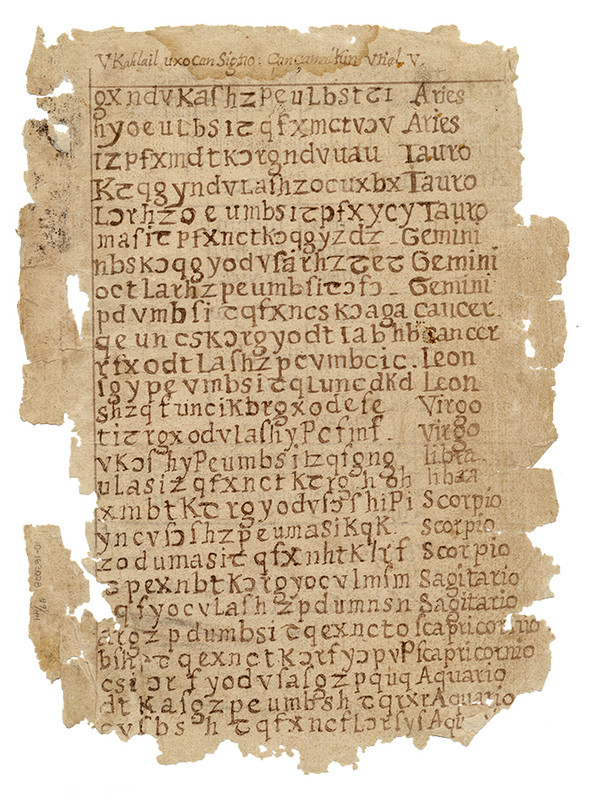 V Kahlail uxocan Signo: Cançamã kin Utial V.
gxndvKaſhzpeuLbstꞇı Aries
hyoeuLbsiꞇqfxmctvɔv Aries
izpfxmdtKɔrgndvuau Tauro
KꞇqgyndvLaſhzocuxbx Tauro
Lɔrhzoeumbsiꞇpfxycy Tauro
masiꞇpfxnctkɔqgyzdz Gemini
nbskɔqgyodvsarhzꞇeꞇ Gemini
octLarhzpeumbsiꞇɔfɔ Gemini
pdvmbsiꞇqfxncskɔaga cancer
qeuncsKɔrgyodtlabhb cancer
rfxodtLaſhzpevmbcic. Leon
sgypevmbsiꞇqLuncdKd Leon
shzqfunciKbrgxodeſe Virgo
tiꞇrgxodvlaſhyPcfmf Virgo
vKɔſhyPeumbsiꞇzqfgng libra
uLasizqfxnctKꞇrghoh libra
xmbtKꞇrgyodvsɔshiPi Scorpio
yncvsɔshzpeumasiKqK. Scorpio
zodumasiꞇqfxnhtKlrf Scorpio
pexnbtKɔrgyocvlmſm Sagitario
qfyocvlaſhzpdumnsn Sagitario
argzpdumbsiꞇqexncto ſcapricornio
ꞇqexnctKɔrfyɔpvP ſcapricornio
csi ɔr fyodvſaſgzpququ Aquario
dtKaſgzpeumbshꞇqrxr Aquario